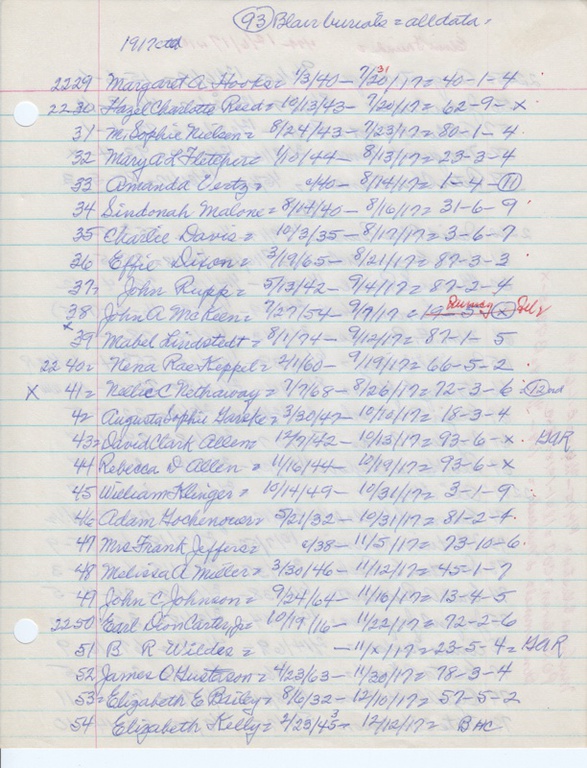 (93) Blair burials = all data.
1917 ctd
31
2229 Margaret A Hooks = 1/3/40 - 7/20/17 = 40-1-4
2230 Hazel Charlotte Reed = 10/13/43 - 7/20/17 = 62-9-x
31 M. Sophie Nielson = 8/24/43 - 7/23/17 = 80-1-4
32 Mary A L Fletcher = 1/10/44 - 8/13/17 = 23-3-4
33 Amanda Vertz = c/40 - 8/14/17 = 1-4-(11)
34 Sindonah Malone = 8/14/40 - 8/16/17 = 31-6-9
35 Charlie Davis = 10/3/35 - 8/17/17 = 3-6-7
36 Effie Dixon = 3/19/65 - 8/21/17 = 87-3-3
37 = John Rupp = 5/13/42 - 9/4/17 = 87-2-4
38 John A McKeen = 7/27/54 - 9/7/17 =
x 39 Mabel Lindstedt = 8/1/74 - 9/12/17 = 87-1 5
2240 = Nena Rae Keppel = 2/1/60 - 9/19/17 = 66-5-2
X 41 = Nellie C Nethaway = 7/7/68 - 8/26/17 = 72-3-6 (12) nd
42 Augusta Sophie Garske = 3/30/47 - 10/10/17 = 18-3-4
43 = David Clark Allen = 12/7/42 - 10/13/17 = 93-6-x. GAR
44 Rebecca D Allen = 11/16/44 - 10/19/17 = 93-6-x
45 William Klinger = 10/14/49 - 10/31/17 = 3-1-9
46 Adam Gochenour = 5/21/32 - 10/31/17 = 81-2-4
47 Mrs Frank Jeffers = c/38 - 11/5/17 = 73-10-6
48 Melissa A Miller = 3/30/46 - 11/12/17 = 45-1-7
49 John C Johnson = 9/24/64 - 11/16/17 = 13-4-5
2250 Earl Dion Carter, Jr = 10/19/16 - 11/22/17 = 72-2-6
51 B R Wildes = - 11/x/17 = 23-5-4 = GAR
52 James O Gustason = 4/23/63 - 11/30/17 = 78-3-4
53 = Elizabeth E Bailey = 8/6/32 - 12/10/17 = 57-5-2
54 Elizabeth Kelly = 2/23/45 3 = 12/12/17 = BHC